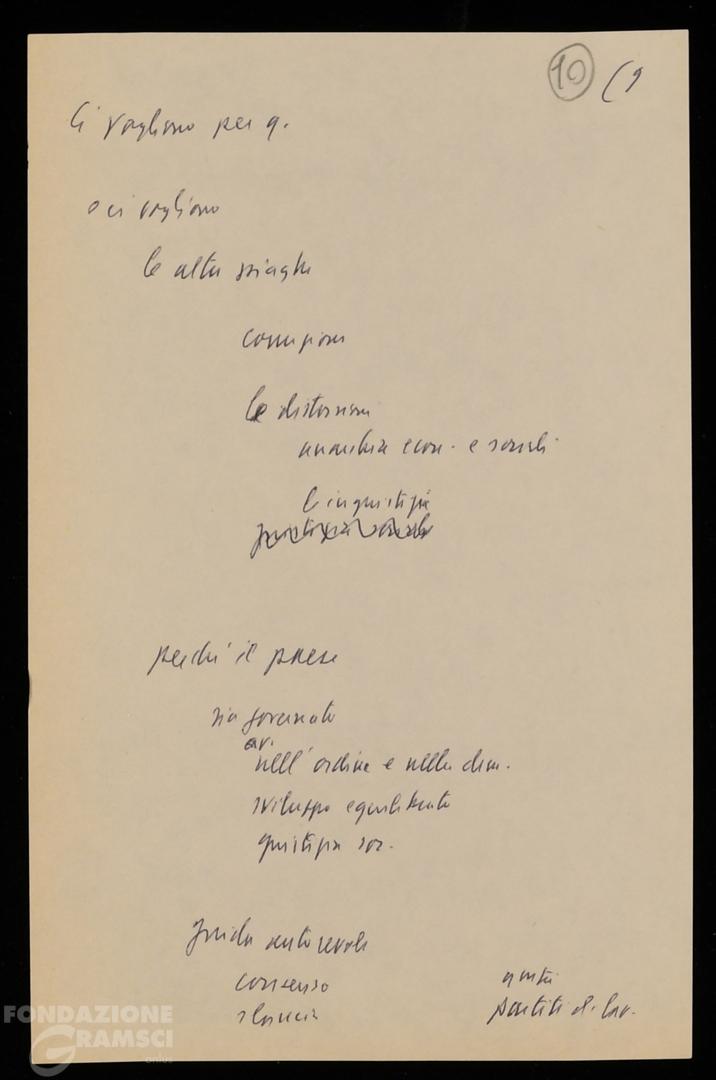 10 (9
Ci vogliono per q.
o ci vogliono
le altre piaghe
corruzione
le distorsioni
anarchia econ. e sociale
le ingiustizie
giustizia sociale
perché il paese
sia governato
av.
nell'ordine e nella dem.
sviluppo equilibrato
giustizia soc.
guida autorevole
consenso
slancio
unità
partiti di lav.
FONDAZIONE
GRAMSCI
onlus